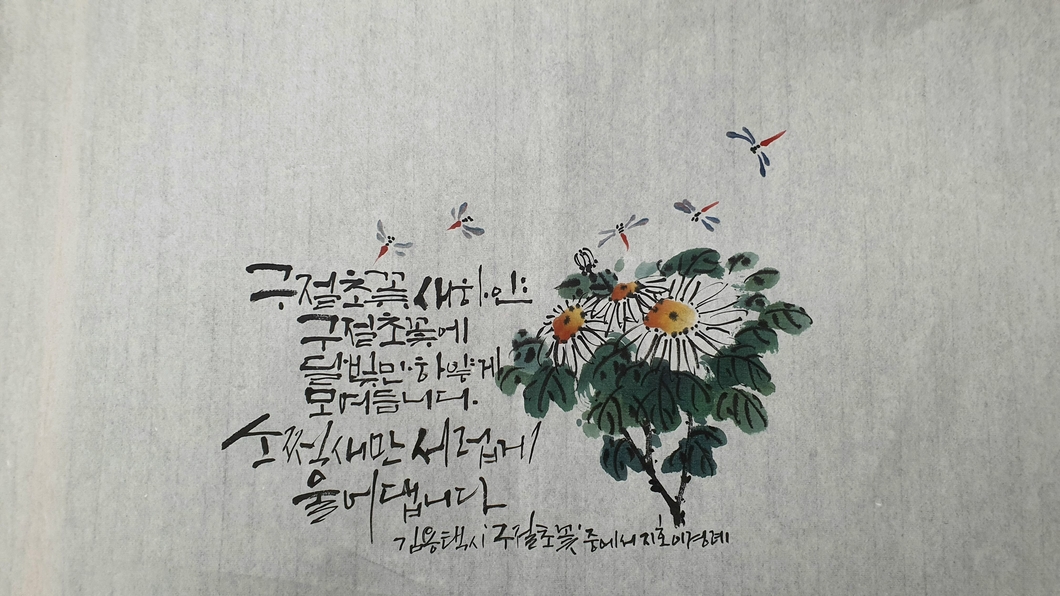 구절초꽃 새하얀
구절초꽃에
달빛만 하얗게
모여듭니다.
소쩍새만 서럽게
울어댑니다
김용택시 구절초꽃 중에서 지호 이경례